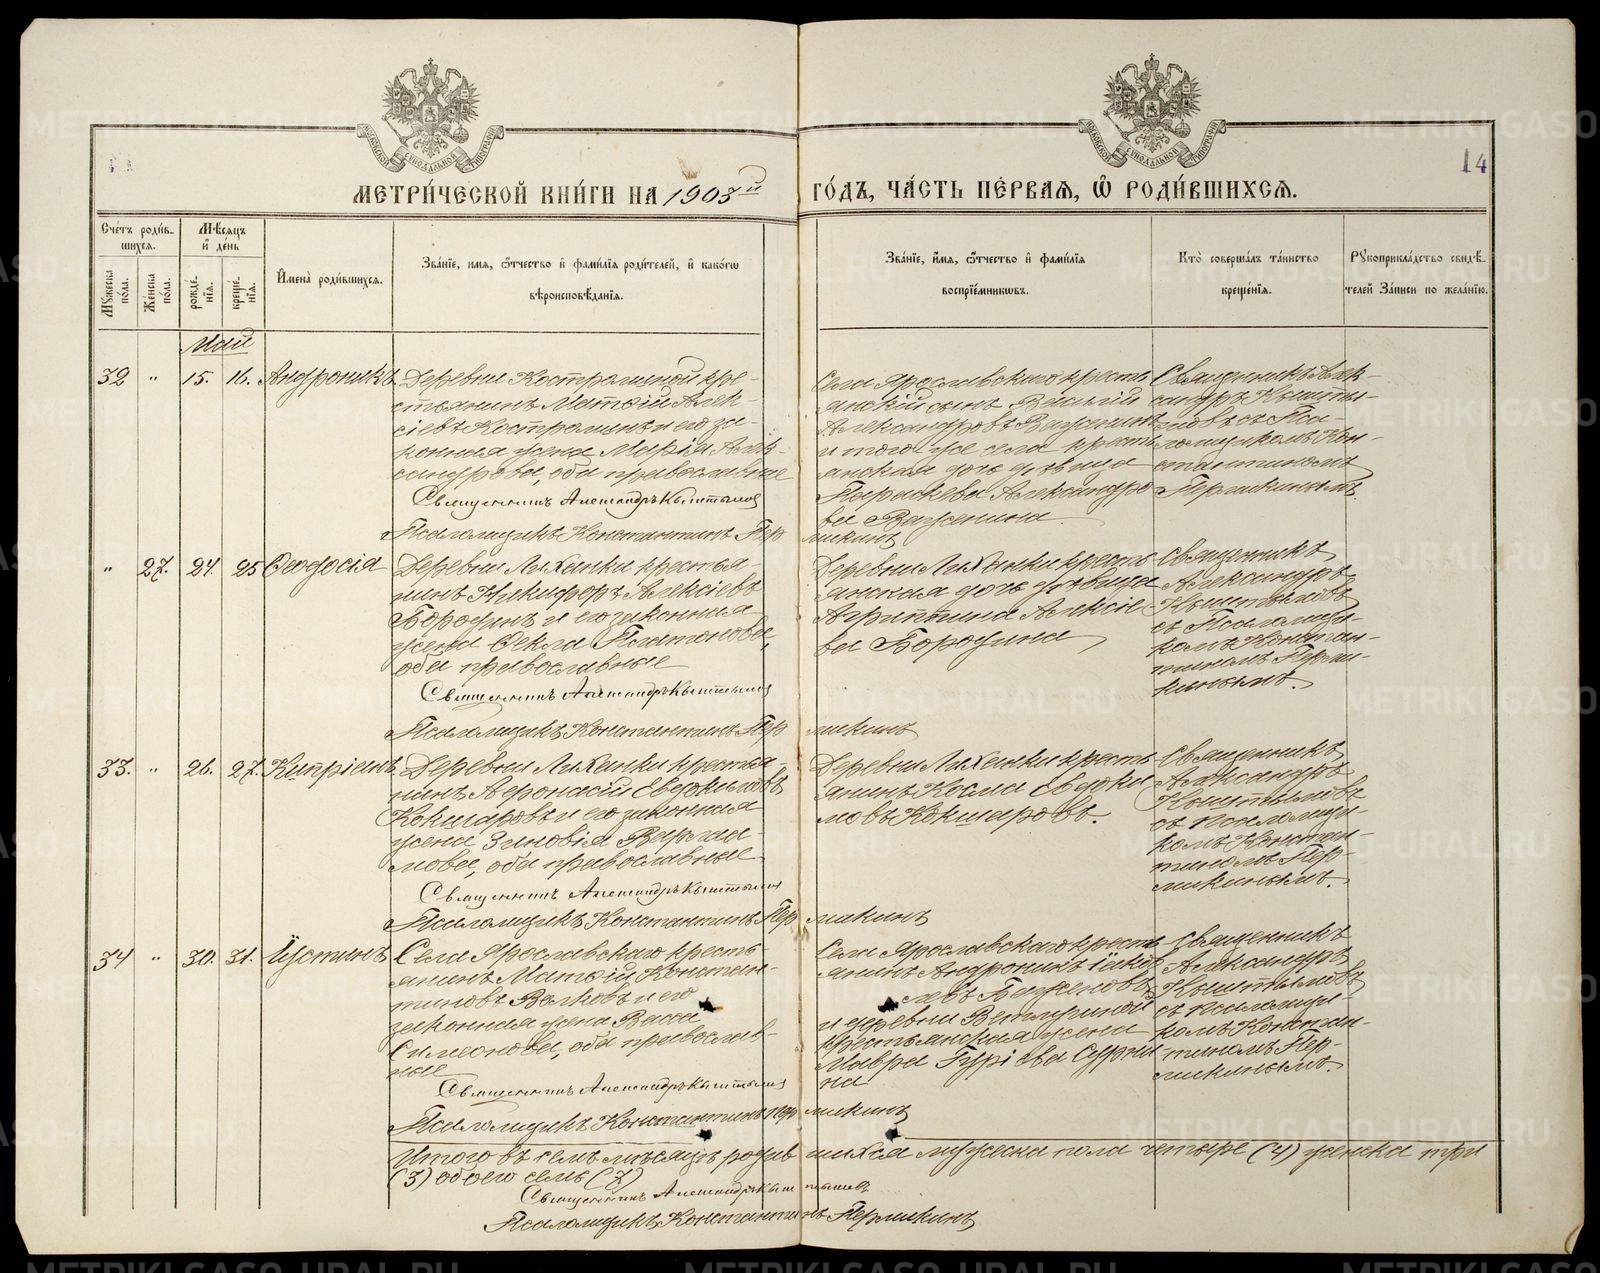 МЕТРИ́ЧЕСКОЙ КНИ́ГИ НА 1903й ГО́ДЪ, ЧА́СТЬ ПЕ́РВАЯ, Ѿ РОДИ́ВШИХСЯ.
14
Сче́тъ роди́в-
шихся.
Мѣ́сяцъ
и де́нь
Му́жеска
по́ла.
Же́нска
по́ла.
рожде́-
нія.
креще́-
нія.
Имена̀ роди́вшихся.
Зва́ніе, имя, ѻ́тчество и фами́лія роди́телей, и како́гѡ
вѣроисповѣ́данія.
Зва́ніе, и́мя, ѻ́тчество и фами́лія
воспріе́мникѡвъ.
Кто̀ соверша́лъ та́инство
креще́нія.
Рꙋкоприкла́дство свидѣ́-
телей За́писи по жела́нію.
Май
32 " 15. 16. Андроникъ
Деревни Костромины кре-
стьянинъ Матѳій Алек-
сіевъ Костроминъ и его за-
конная жена Марія Алек-
сандрова, оба православные
Священникъ Александръ Кыштымов
Псаломщикъ Константинъ Пермикинъ
Села Ярославскаго кресть
янскій сынъ Василій
Александровъ Важенинъ
и того же села кресть
янская дочь дѣвица
Параскева Александро
ва Важенина.
Священникъ Алек-
сандръ Кышты-
мовъ съ Пса-
ломщикомъ Кон-
стантиномъ
Пермикинымъ.
" 27. 24. 25 Ѳеодосія
Деревни Лиханки крестья-
нинъ Никифоръ Алексіевъ
Бородинъ и его законная
жена Ѳекла Платонова,
оба православные
Священникъ Александръ Кыштымов
Псаломщикъ Константинъ Пермикинъ
Деревни Лиханки кресть
янская дочь дѣвица
Агриппина Алексіе
ва Бородина
Священникъ
Александръ
Кыштымовъ
съ Псаломщи-
комъ Констан-
тиномъ Перми-
кинымъ.
33. " 26. 27. Кипріанъ
Деревни Лиханки крестья-
нинъ Аѳонасій Евдокимовъ
Кокшаровъ и его законная
жена Зиновія Варлаа-
мова, оба православные
Священникъ Александръ Кыштымов
Псаломщикъ Константинъ Пермикинъ
Деревни Лиханки кресть
янинъ Косма Евдоки
мовъ Кокшаровъ.
Священникъ
Александръ
Кыштымовъ
съ псаломщи-
комъ Констан-
тиномъ Пер-
микинымъ.
34 " 30. 31. Іустинъ
Села Ярославскаго кресть-
янинъ Матѳій Констан-
тиновъ Волковъ и его
законная жена Васса
Симеонова, оба православ-
ные
Священникъ Александръ Кыштымов
Псаломщикъ Константинъ Пермикинъ
Села Ярославскаго кресть
янинъ Андроникъ Іако
левъ Баженовъ
и деревни Ветлугиной
крестьянская жена
Мавра Гурієва Сурни
на
Священникъ
Александръ
Кыштымовъ
съ псаломщи-
комъ Констан-
тиномъ Пер-
микинымъ.
Итого въ семъ мѣсяцѣ родившихся мужеска пола четыре (4) женска три
(3) обоего семь (7)
Священникъ Александръ Кыштымовъ
Псаломщикъ Константинъ Пермикинъ
METRIKI.GASO-URAL.RU